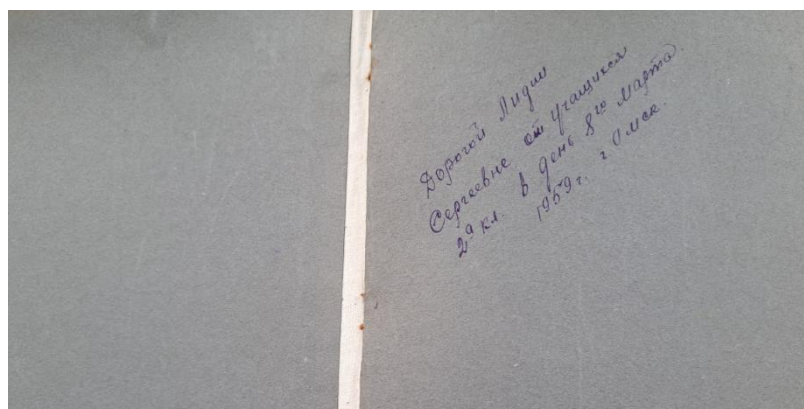 Дорогой Лидии
Сергеевне от учащихся
2а кл. в день 8го Марта.
1959г. г. Омск.